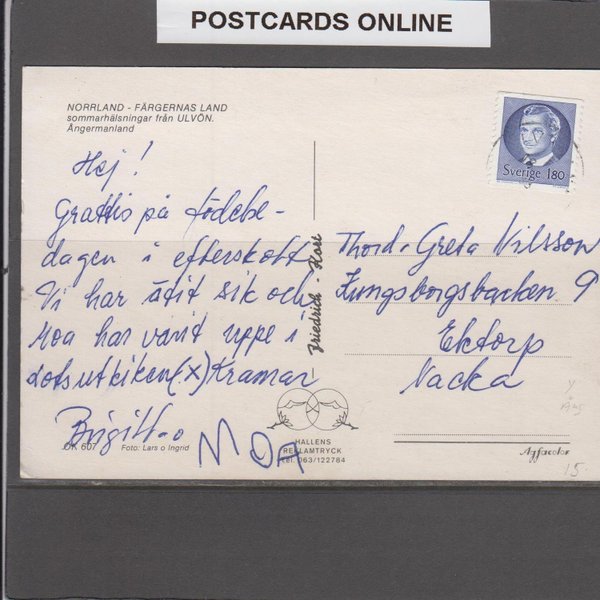 POSTCARDS ONLINE
NORRLAND - FÄRGERNAS LAND
sommarhälsningar från ULVÖN.
Ångermanland
Hej!
Grattis på födelse-
dagen i efterskott
Vi har ätit sik och
Moa har varit uppe i
lotsutkiken (x) Kramar
Birgitta o
MOA
Sverige 180
Thord o Greta Nilsson
Kungsborgsbacken 9
Ektorp
Nacka
Friedrich - Kort
ÖK 607 Foto: Lars o Ingrid
HALLENS
REKLAMTRYCK
tel. 063/122784
Agfacolor
15